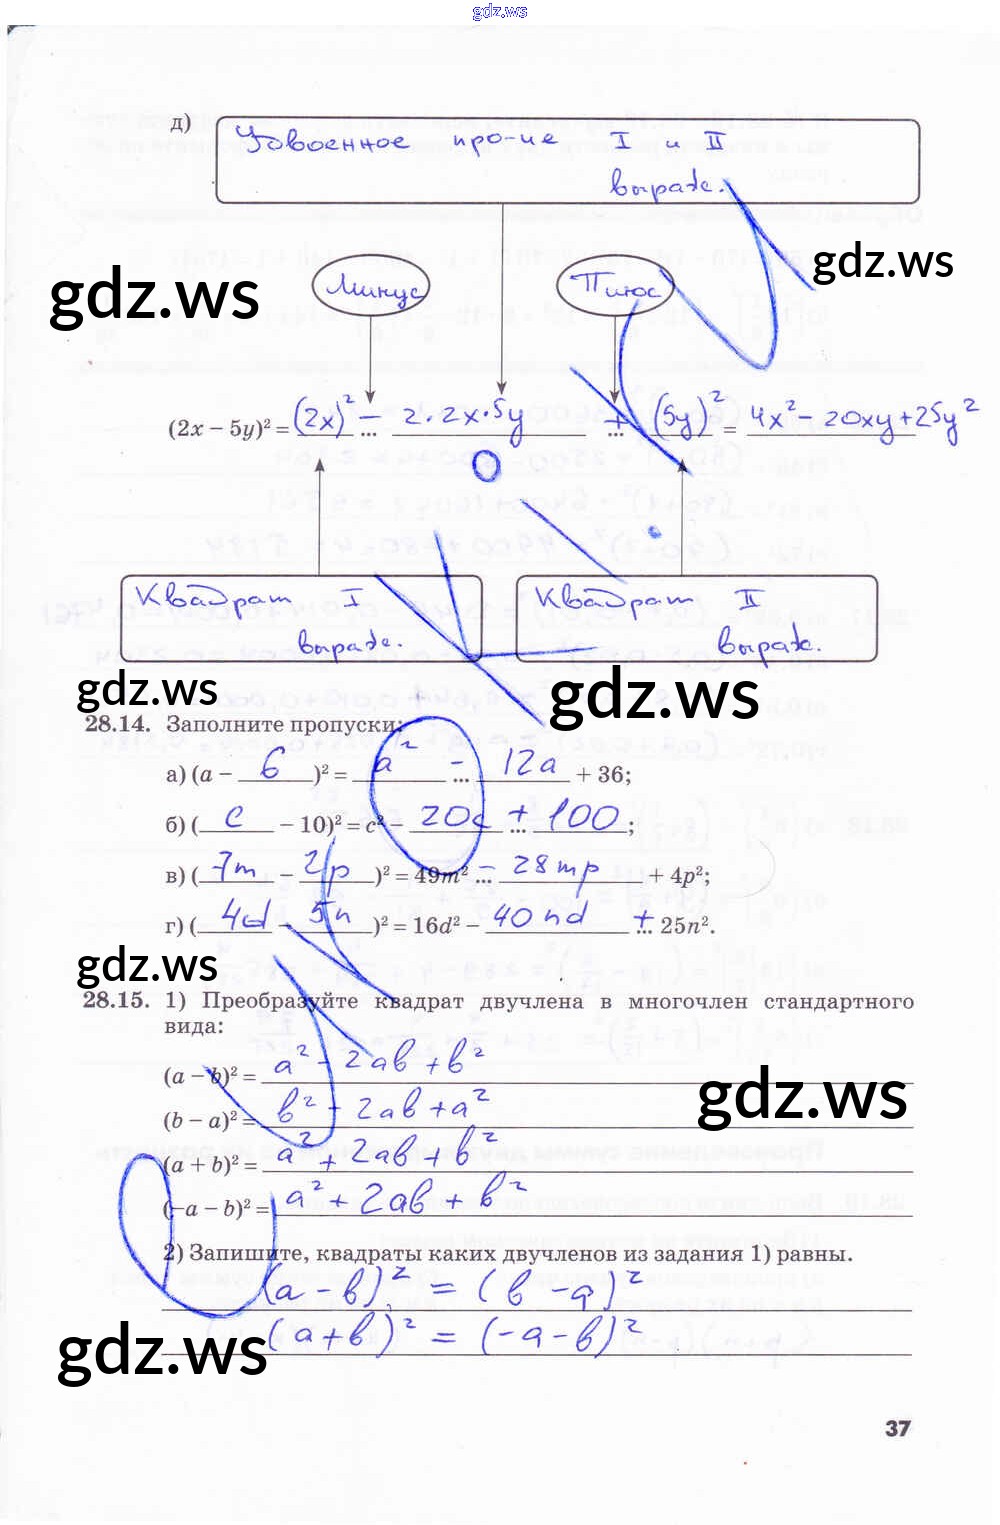 gdz.ws
д)
Удвоенное про-ие I и II
выраж.
gdz.ws
gdz.ws
Минус Плюс
(2x – 5y)² = (2x)² – ... 2·2x·5y + ... (5y)² = 4x² – 20xy + 25y²
Квадрат I
выраж.
Квадрат II
выраж.
gdz.ws
gdz.ws
28.14. Заполните пропуски:
а) (a – 6)² = a² – ... 12a + 36;
б) (c – 10)² = c² – 20c + ... 100;
в) (7m – 2p)² = 49m² ... – 28mp + 4p²;
г) (4d – 5n)² = 16d² – 40nd + ... 25n².
gdz.ws
28.15. 1) Преобразуйте квадрат двучлена в многочлен стандартного
вида:
(a – b)² = a² – 2ab + b²
(b – a)² = b² – 2ab + a²
gdz.ws
(a + b)² = a² + 2ab + b²
(–a – b)² = a² + 2ab + b²
2) Запишите, квадраты каких двучленов из задания 1) равны.
(a – b)² = (b – a)²
(a + b)² = (–a – b)²
gdz.ws
37